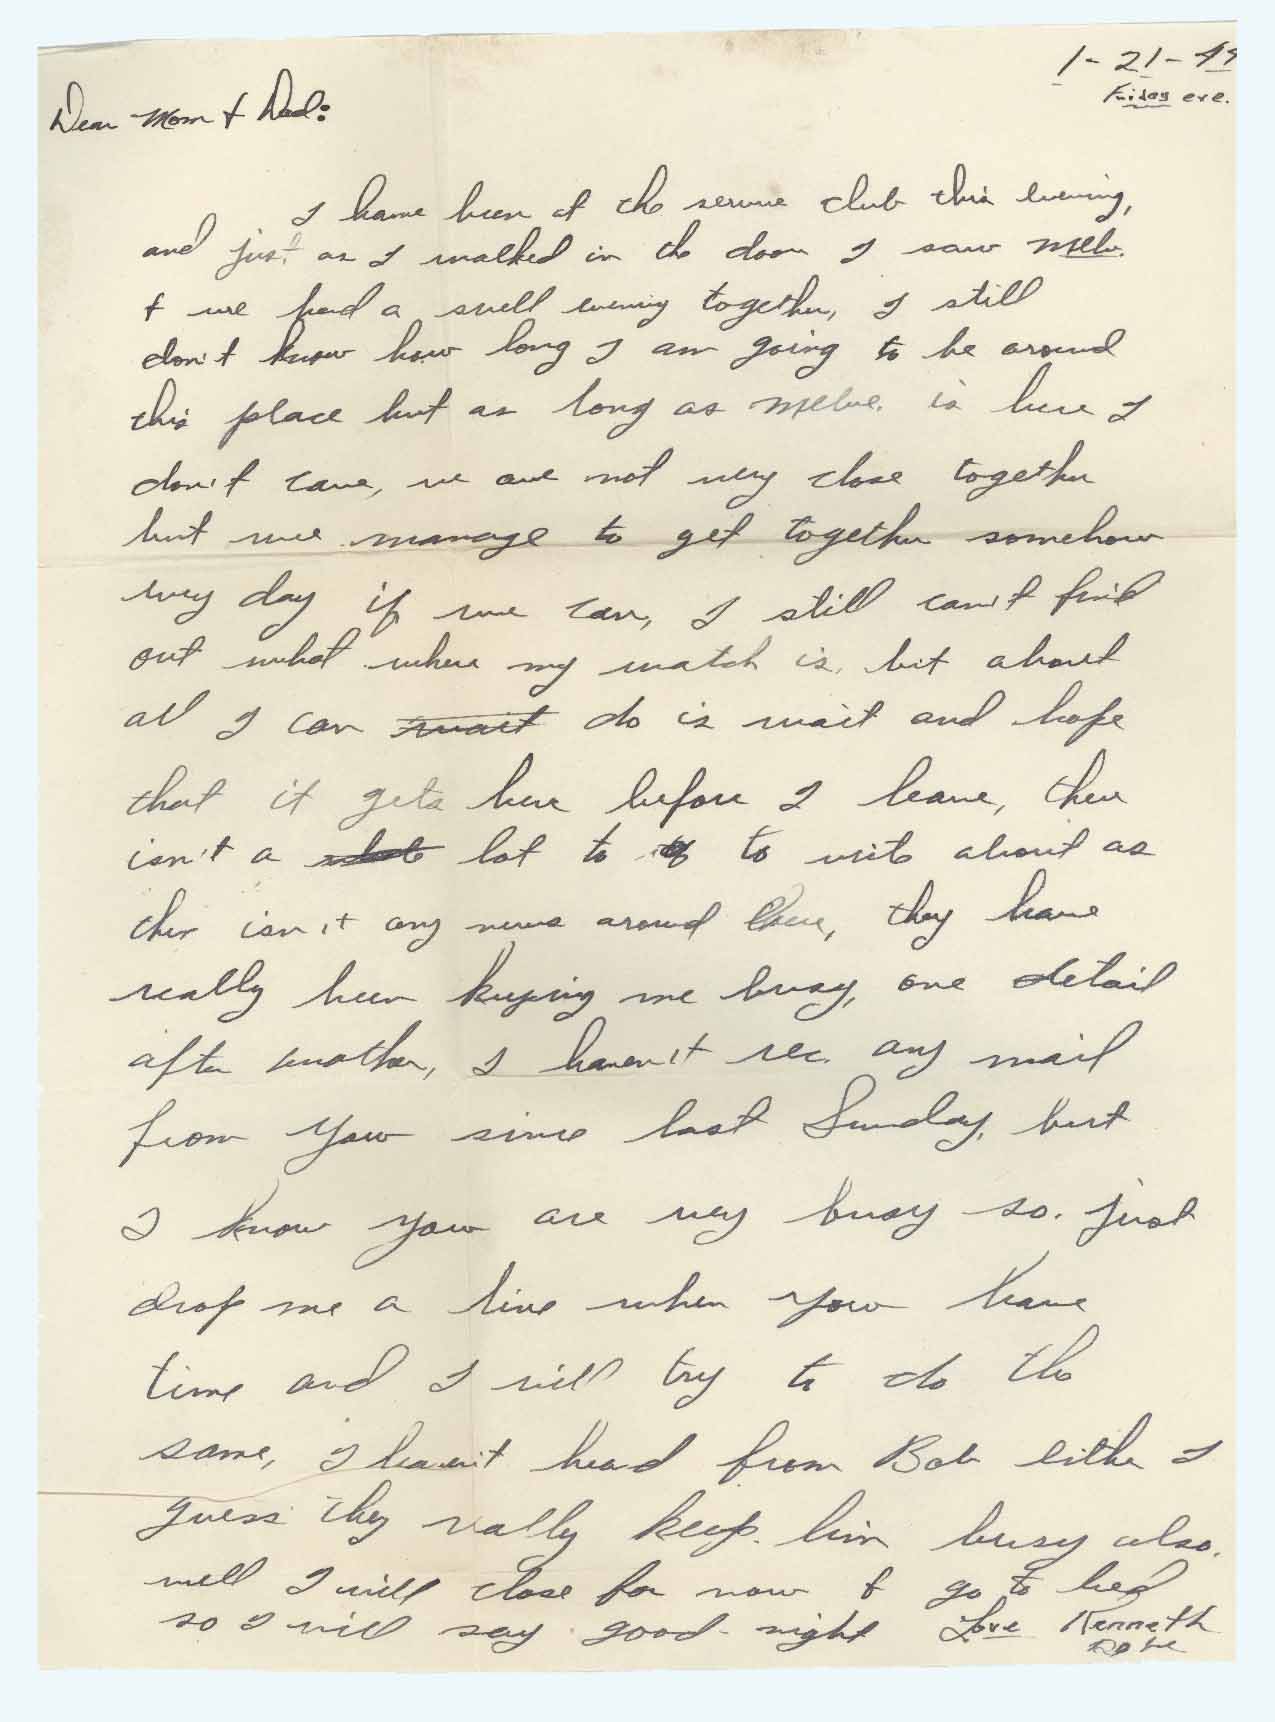 1-21-49
Friday eve.
Dear Mom & Dad:
I have been at the service club this evening,
and just as I walked in the door I saw Melv.
& we had a swell evening together, I still
don't know how long I am going to be around
this place but as long as Melve. is here I
don't care, we are not very close together
but we manage to get together somehow
every day if we can, I still can't find
out what where my watch is, but about
all I can wait do is wait and hope
that it gets here before I leave, there
isn't a lot to to write about as
ther isn't any news around here, they have
really been keeping me busy, one detail
after another, I haven't rec. any mail
from you since last Sunday, but
I know you are very busy so. just
drop me a line when you have
time and I will try to do the
same, I haven't heard from Bob either I
guess they really keep him busy also.
well I will close for now & go to bed
so I will say good-night Love Kenneth